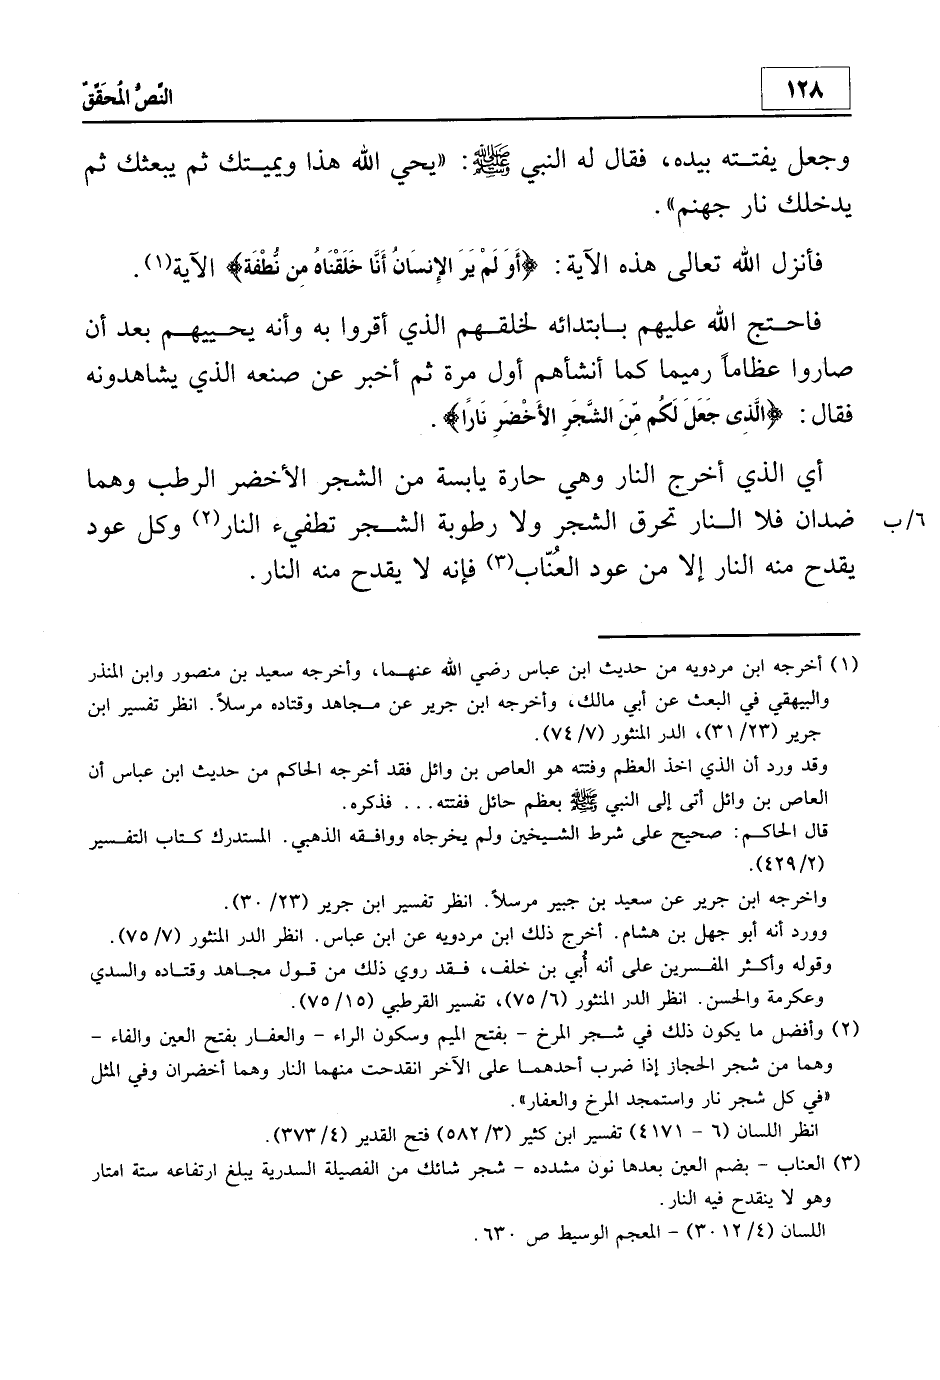 ١٢٨
النَّصُّ المُحَقَّقْ
وجعل يفتـته بيده، فقال له النبي ﷺ: «يحي الله هذا ويميـتك ثم يبعثك ثم
يدخلك نار جهنم».
فأنزل الله تعالى هذه الآية: ﴿أَوَ لَمْ يَرَ الإِنسَانُ أَنَّا خَلَقْنَاهُ مِن نُّطْفَة﴾ الآية(١).
فاحـتج الله عليهم بـابتدائه لخلقـهم الذي أقروا به وأنه يحـييهـم بعد أن
صاروا عظاماً رميما كما أنشأهم أول مرة ثم أخبر عن صنعه الذي يشاهدونه
فقال: ﴿الَّذِى جَعَلَ لَكُم مِّنَ الشَّجَرِ الأَخْضَرِ نَارًا﴾.
أي الذي أخرج النار وهي حارة يابسة من الشجر الأخضر الرطب وهما
ضدان فلا الـنار تحرق الشجر ولا رطوبة الشـجر تطفيء النار(٢) وكل عود
٦/ب
يقدح منه النار إلا من عود العُنّاب(٣) فإنه لا يقدح منه النار.
(١) أخرجه ابن مردويه من حديث ابن عباس رضي الله عنهـما، وأخرجه سعيد بن منصور وابن المنذر
والبيهقي في البعث عن أبي مالك، وأخرجه ابن جرير عن مـجاهد وقتاده مرسلاً. انظر تفسير ابن
جرير (٣١/٢٣)، الدر المنثور (٧٤/٧).
وقد ورد أن الذي اخذ العظم وفتته هو العاص بن وائل فقد أخرجه الحاكم من حديث ابن عباس أن
العاص بن وائل أتى إلى النبي ﷺ بعظم حائل ففتته... فذكره.
قال الحاكم: صحيح على شرط الشـيخين ولم يخرجاه ووافـقه الذهبي. المستدرك كـتاب التفـسير
(٤٢٩/٢).
واخرجه ابن جرير عن سعيد بن جبير مرسلاً. انظر تفسير ابن جرير (٣٠/٢٣).
وورد أنه أبو جهل بن هشام. أخرج ذلك ابن مردويه عن ابن عباس. انظر الدر المنثور (٧٥/٧).
وقوله وأكـثر المفـسرين على أنه أُبي بن خلف، فـقد روي ذلك من قـول مجـاهد وقتـاده والسدي
وعكرمة والحسن. انظر الدر المنثور (٧٥/٦)، تفسير القرطبي (٧٥/١٥).
(٢) وأفضل ما يكون ذلك في شـجر المرخ - بفتح الميم وسكون الراء - والعفـار بفتح العين والفاء -
وهما من شجر الحجاز إذا ضرب أحدهمـا على الآخر انقدحت منهما النار وهما أخضران وفي المثل
«في كل شجر نار واستمجد المرخ والعفار».
انظر اللسان (٦ - ٤١٧١) تفسير ابن كثير (٥٨٢/٣) فتح القدير (٣٧٣/٤).
(٣) العناب - بضم العين بعدها نون مشدده - شجر شائك من الفصيلة السدرية يبلغ ارتفاعه ستة امتار
وهو لا ينقدح فيه النار.
اللسان (٣٠١٢/٤) - المعجم الوسيط ص ٦٣٠.